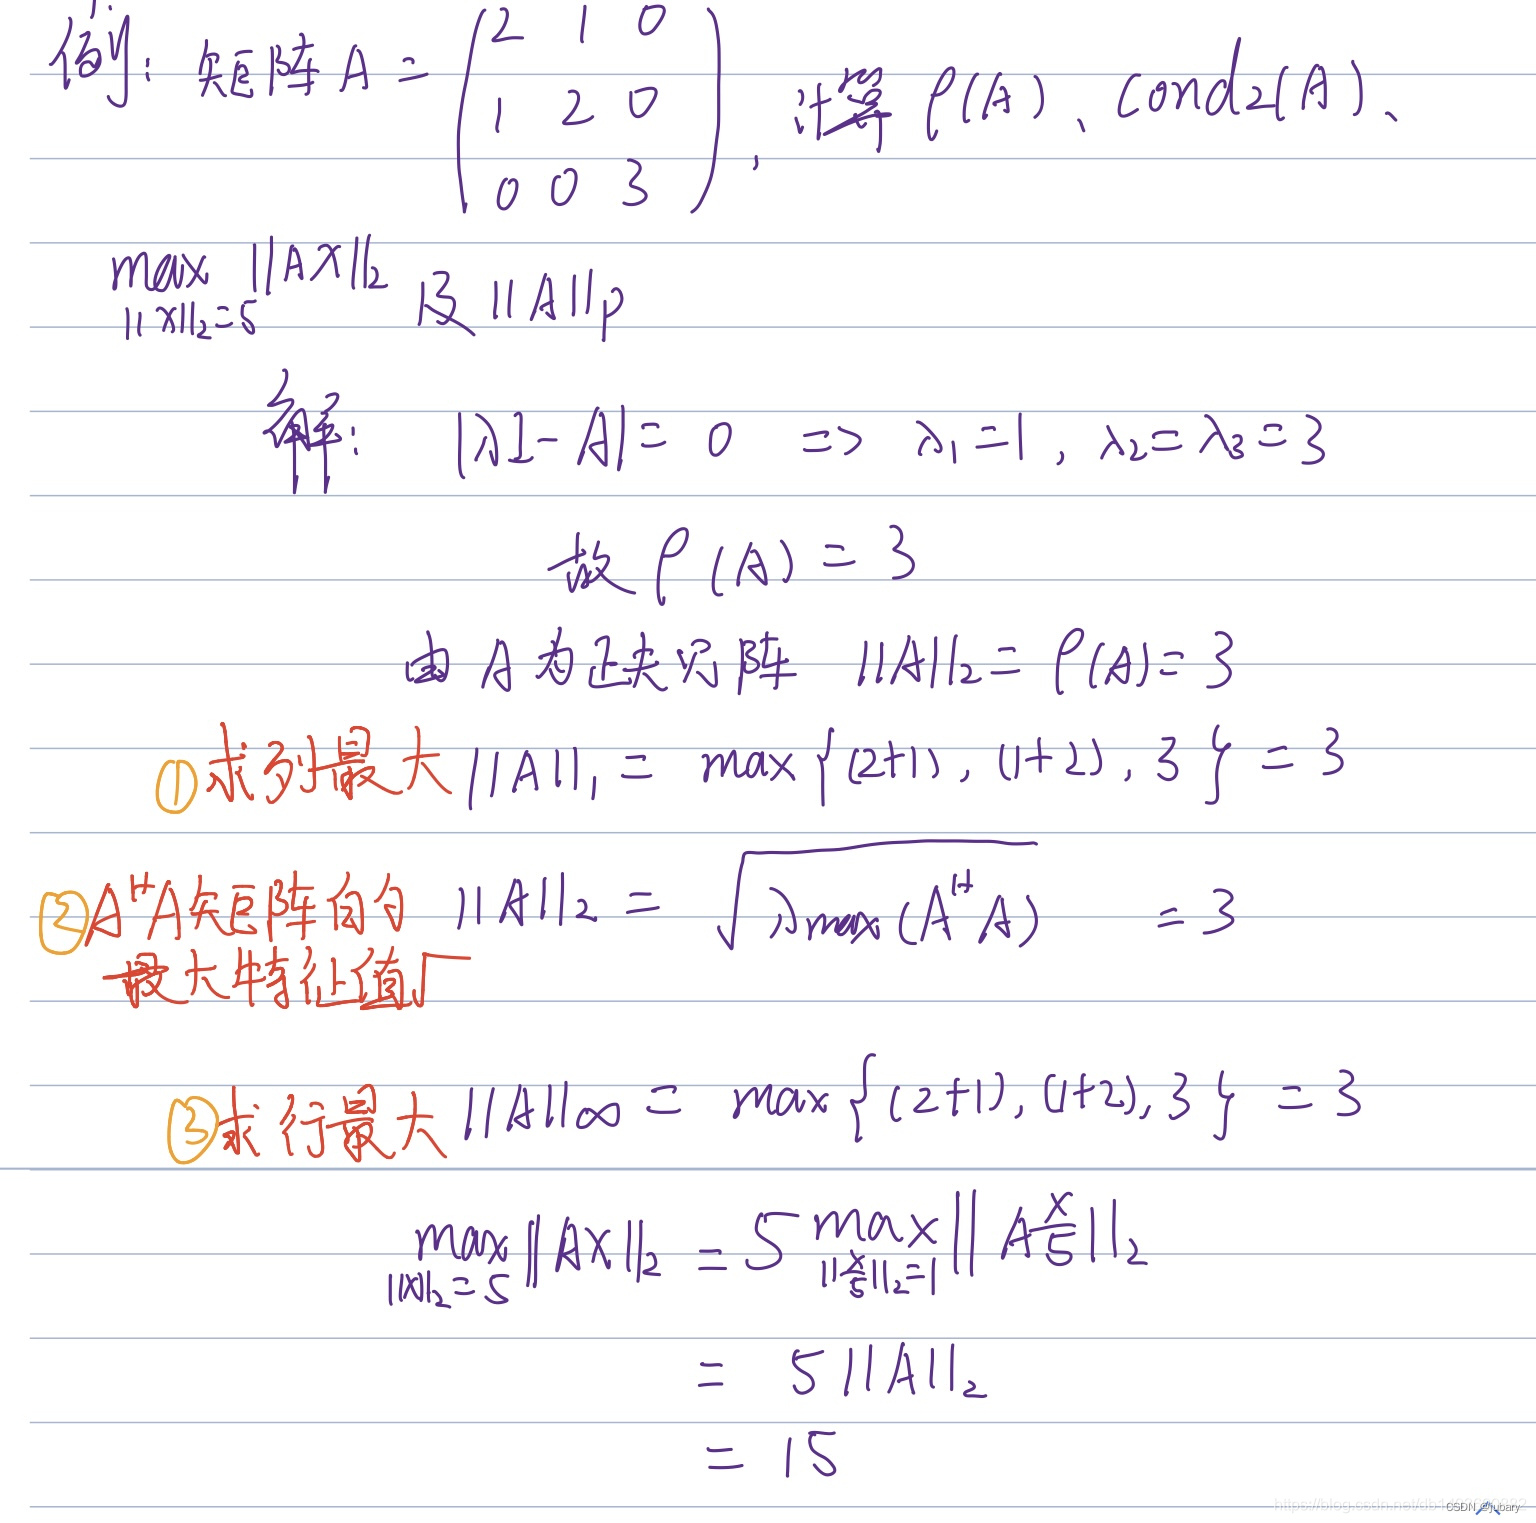 例: 矩阵 A = (2 1 0
1 2 0
0 0 3), 计算 ρ(A)、cond2(A)、
max ||AX||₂ 及 ||A||p
||x||₂=5
解: |λI-A| = 0 => λ₁=1, λ₂=λ₃=3
故 ρ(A) = 3
由 A 为正规阵 ||A||₂ = ρ(A) = 3
① 求列最大 ||A||₁ = max{(2+1), (1+2), 3} = 3
② AᴴA矩阵的 ||A||₂ = √λmax(AᴴA) = 3
最大特征值√
③ 求行最大 ||A||∞ = max{(2+1), (1+2), 3} = 3
max ||AX||₂ = 5 max ||A x/5||₂
||x||₂=5 ||x/5||₂=1
= 5||A||₂
= 15
CSDN @jubary